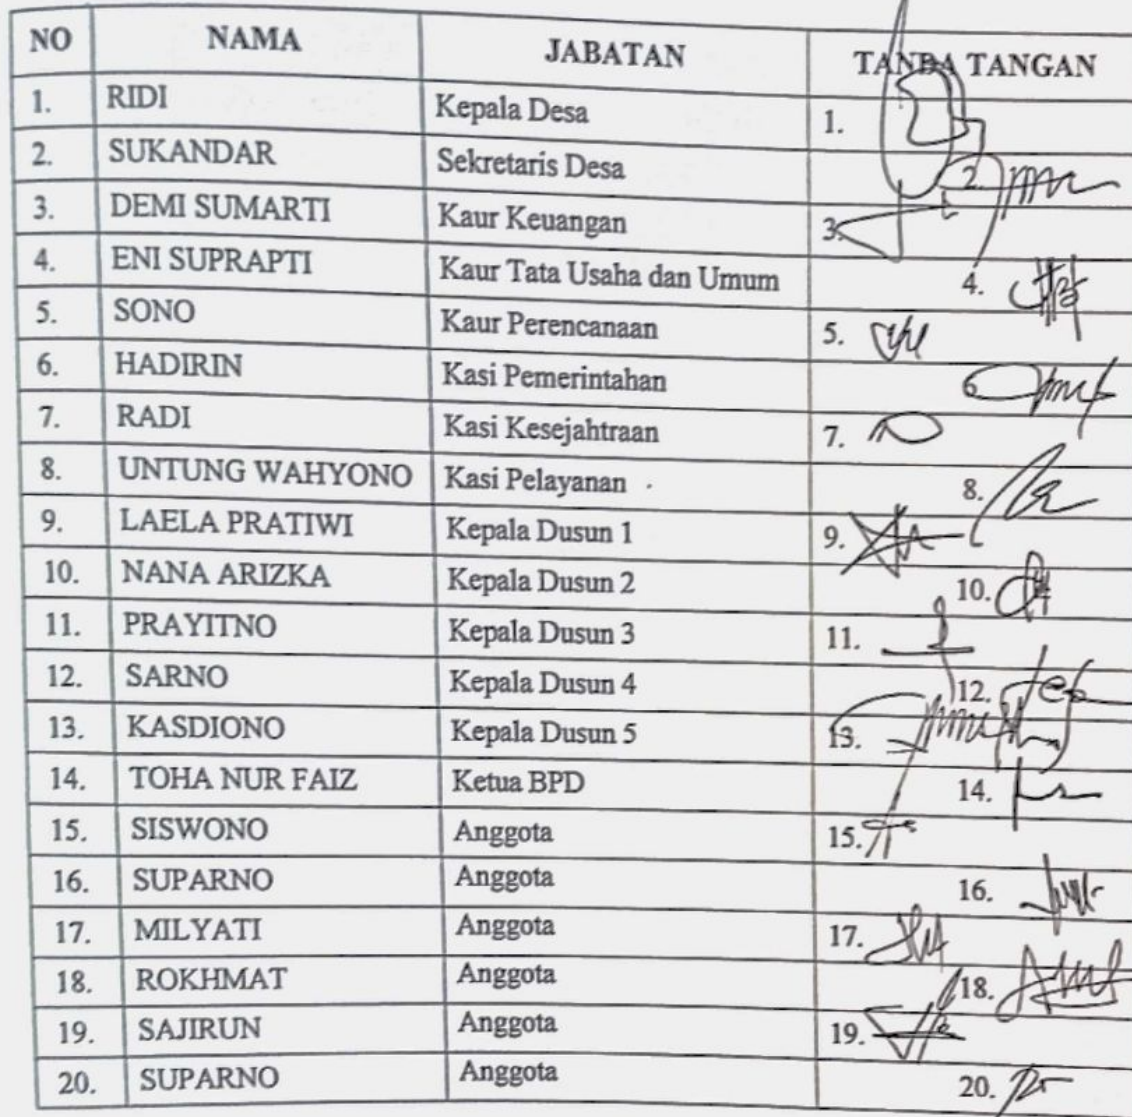 NO NAMA JABATAN TANDA TANGAN
1. RIDI Kepala Desa 1.
2. SUKANDAR Sekretaris Desa 2.
3. DEMI SUMARTI Kaur Keuangan 3.
4. ENI SUPRAPTI Kaur Tata Usaha dan Umum 4.
5. SONO Kaur Perencanaan 5.
6. HADIRIN Kasi Pemerintahan 6
7. RADI Kasi Kesejahtraan 7.
8. UNTUNG WAHYONO Kasi Pelayanan 8.
9. LAELA PRATIWI Kepala Dusun 1 9.
10. NANA ARIZKA Kepala Dusun 2 10.
11. PRAYITNO Kepala Dusun 3 11.
12. SARNO Kepala Dusun 4 12.
13. KASDIONO Kepala Dusun 5 13.
14. TOHA NUR FAIZ Ketua BPD 14.
15. SISWONO Anggota 15.
16. SUPARNO Anggota 16.
17. MILYATI Anggota 17.
18. ROKHMAT Anggota 18.
19. SAJIRUN Anggota 19.
20. SUPARNO Anggota 20.